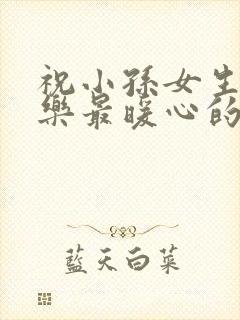 祝小孫女生
樂最暖心的
藍天白菜